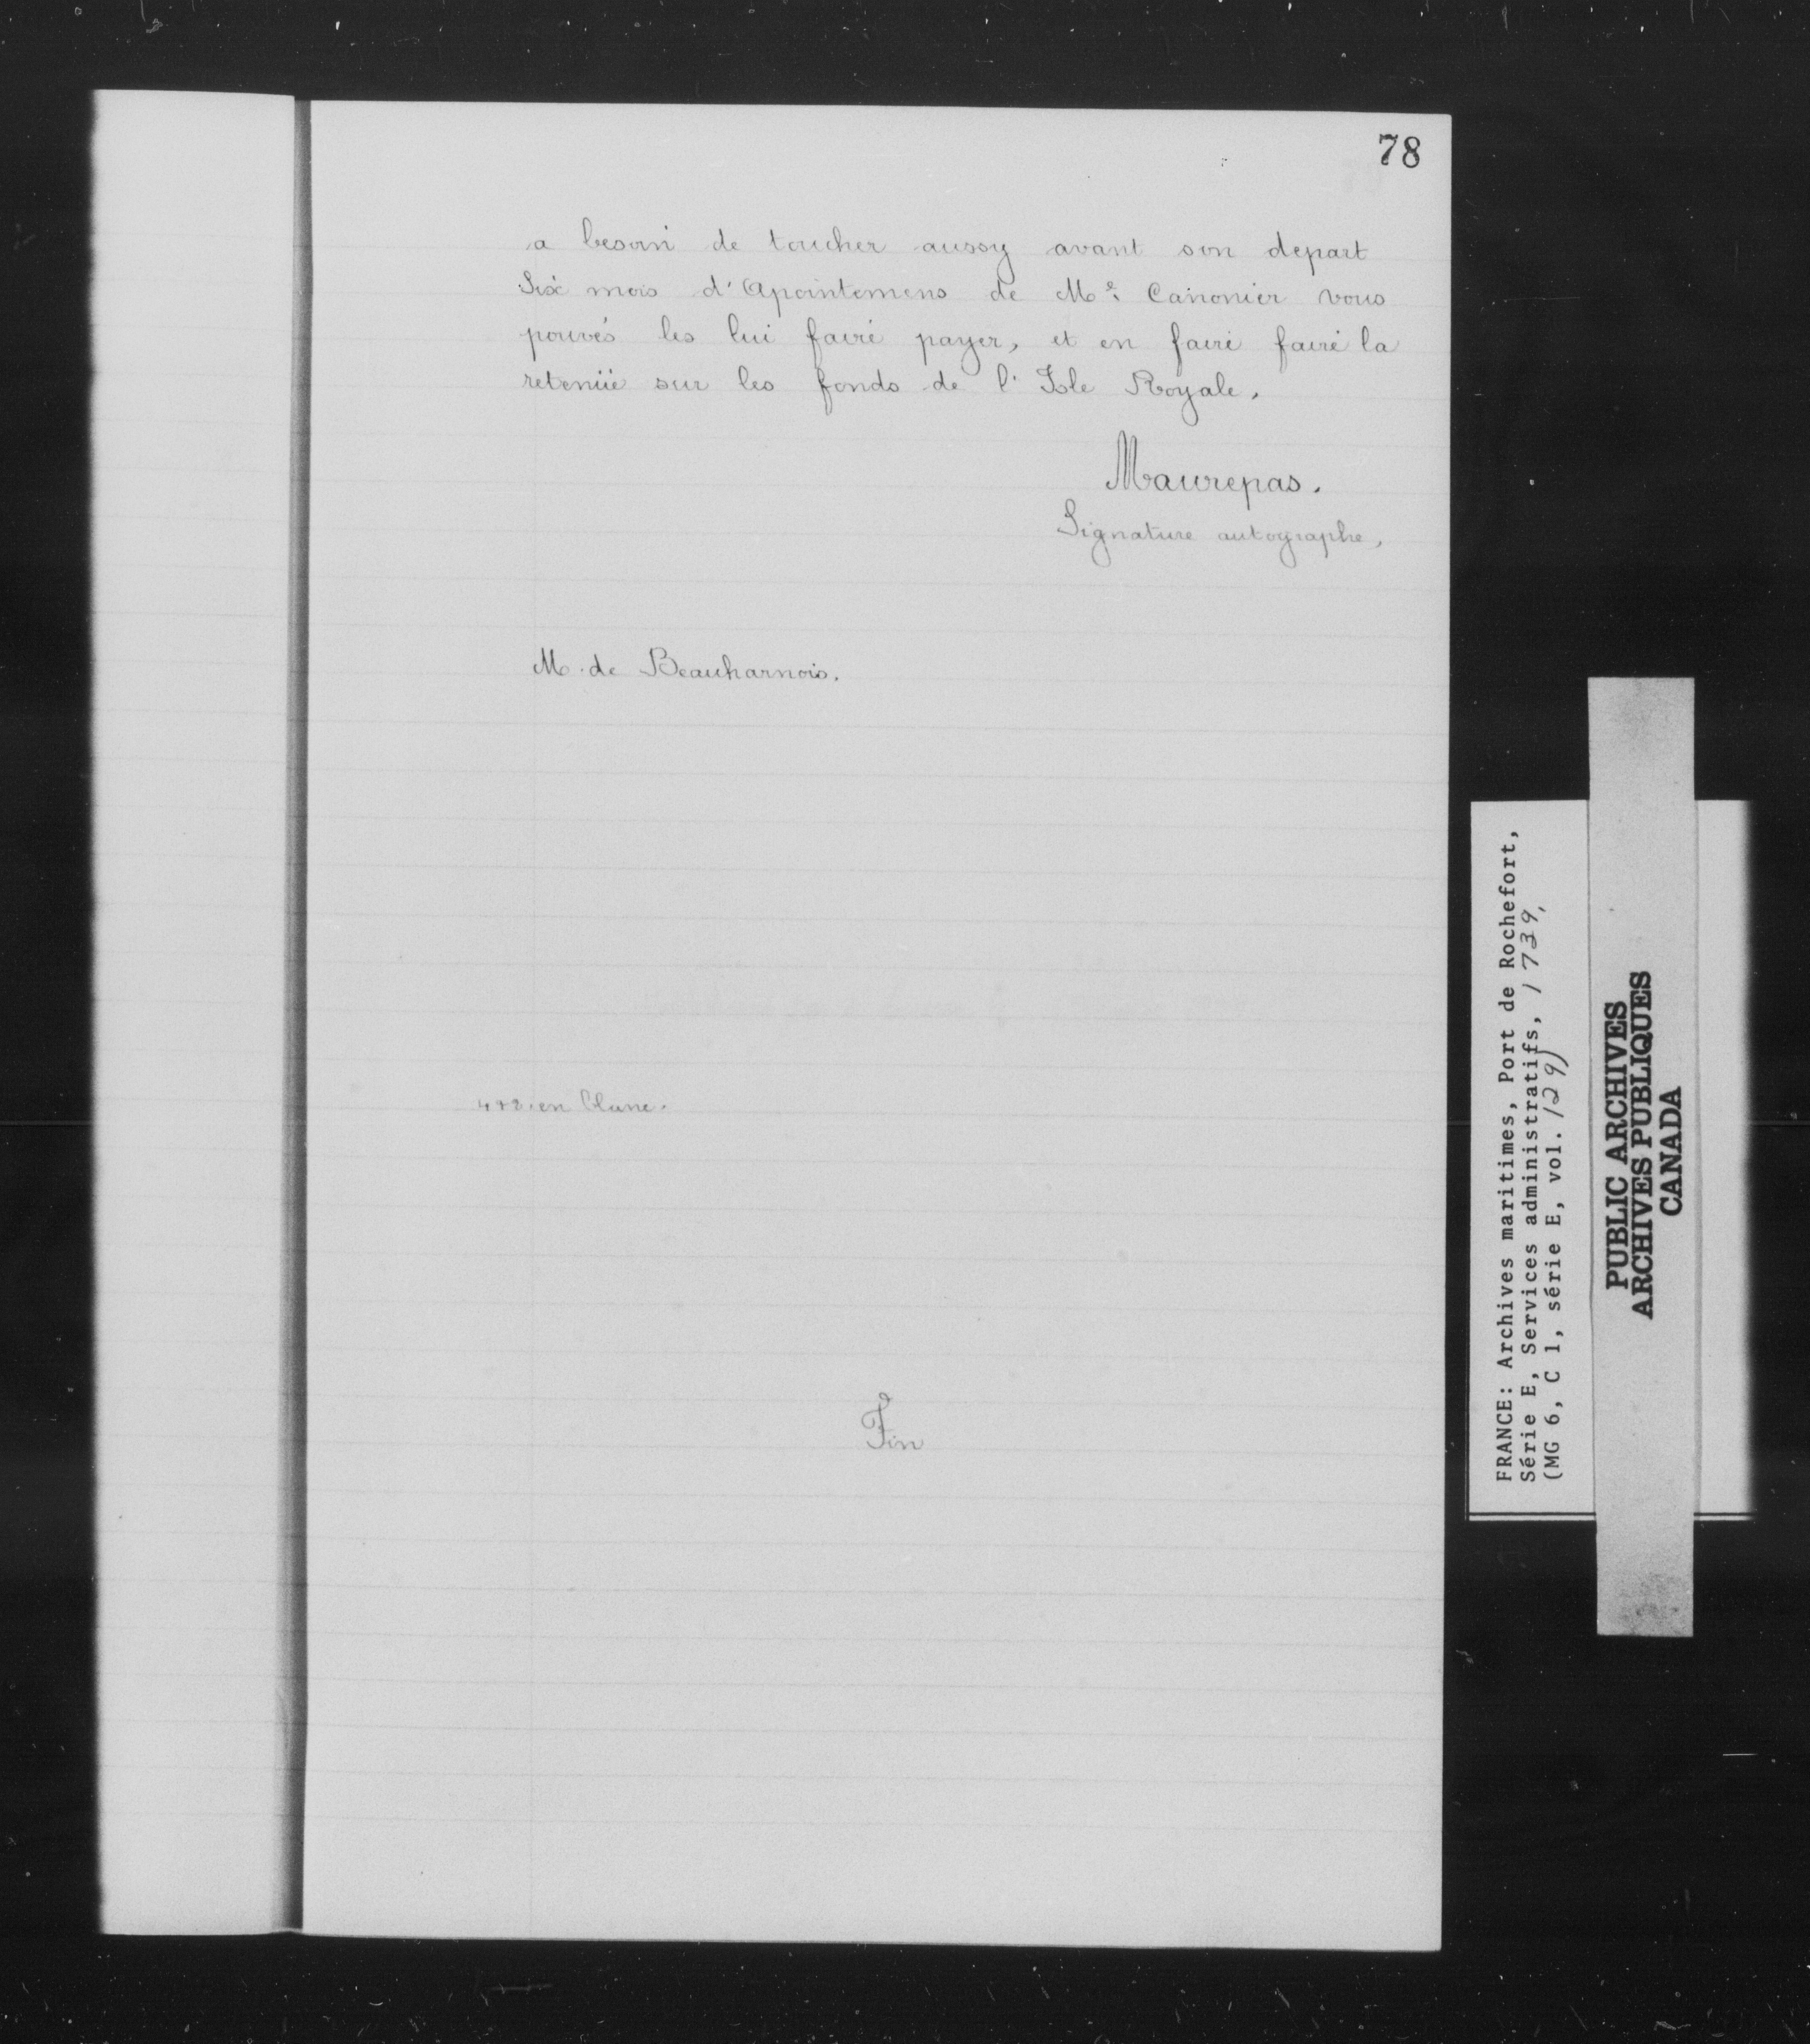 78
a besoin de toucher aussy avant son depart
Six mois d'Apointemens de Me. Canonier vous
pouvés les lui faire payer, et en faire faire la
retenüe sur les fonds de l'Isle Royale.
Maurepas.
Signature autographe.
M. de Beauharnois.
en blanc.
Fin
FRANCE: Archives maritimes, Port de Rochefort,
Série E, Services administratifs, 1739,
(MG 6, C 1, série E, vol. 129)
PUBLIC ARCHIVES
ARCHIVES PUBLIQUES
CANADA